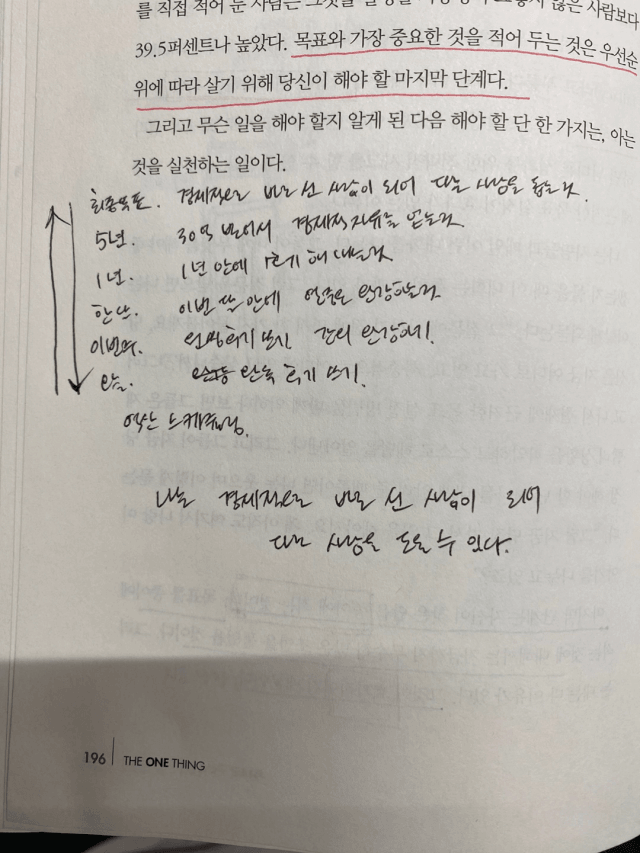 를 직접 적어 둔 사람은 그렇지 않은 사람보다
39.5퍼센트나 높았다. 목표와 가장 중요한 것을 적어 두는 것은 우선순
위에 따라 살기 위해 당신이 해야 할 마지막 단계다.
그리고 무슨 일을 해야 할지 알게 된 다음 해야 할 단 한 가지는, 아는
것을 실천하는 일이다.
최종목표. 경제적으로 바로 선 사람이 되어 다른 사람을 돕는다.
5년. 30억 벌어서 경제적 자유를 얻는다.
1년. 1년 안에 해 내는다
한달. 이번 달 안에 완강하는다
이번주. 쓰기 강의 완강하기!
오늘. 쓰기!
역산 스케쥴링.
나는 경제적으로 바로 선 사람이 되어
다른 사람을 도울 수 있다.
196 THE ONE THING